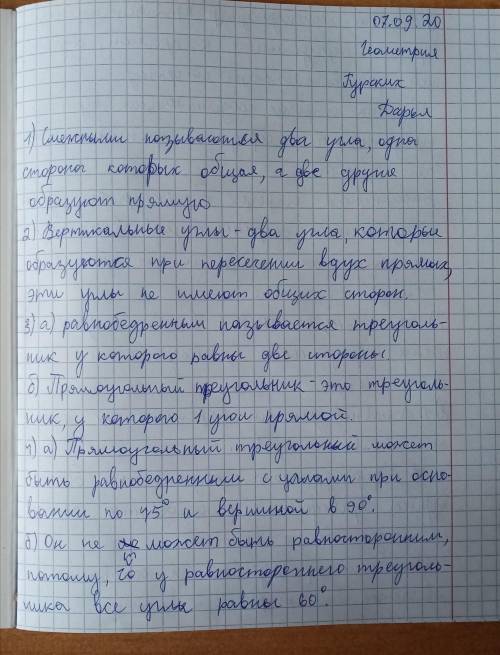 07.09.20
Геометрия
Гурских
Дарья
1) Смежными называются два угла, одна
сторона которых общая, а две другие
образуют прямую
2) Вертикальные углы - два угла, которые
образуются при пересечении вдух прямых,
эти углы не имеют общих сторон.
3) а) равнобедренным называется треуголь-
ник у которого равны две стороны.
б) Прямоугольный треугольник - это треуголь-
ник, у которого 1 угол прямой.
4) а) Прямоугольный треугольный может
быть равнобедренным с углами при осно-
вании по 45° и вершиной в 90°.
б) Он не может быть равносторонним,
потому, у равностороннего треуголь-
ника все углы равны 60°.